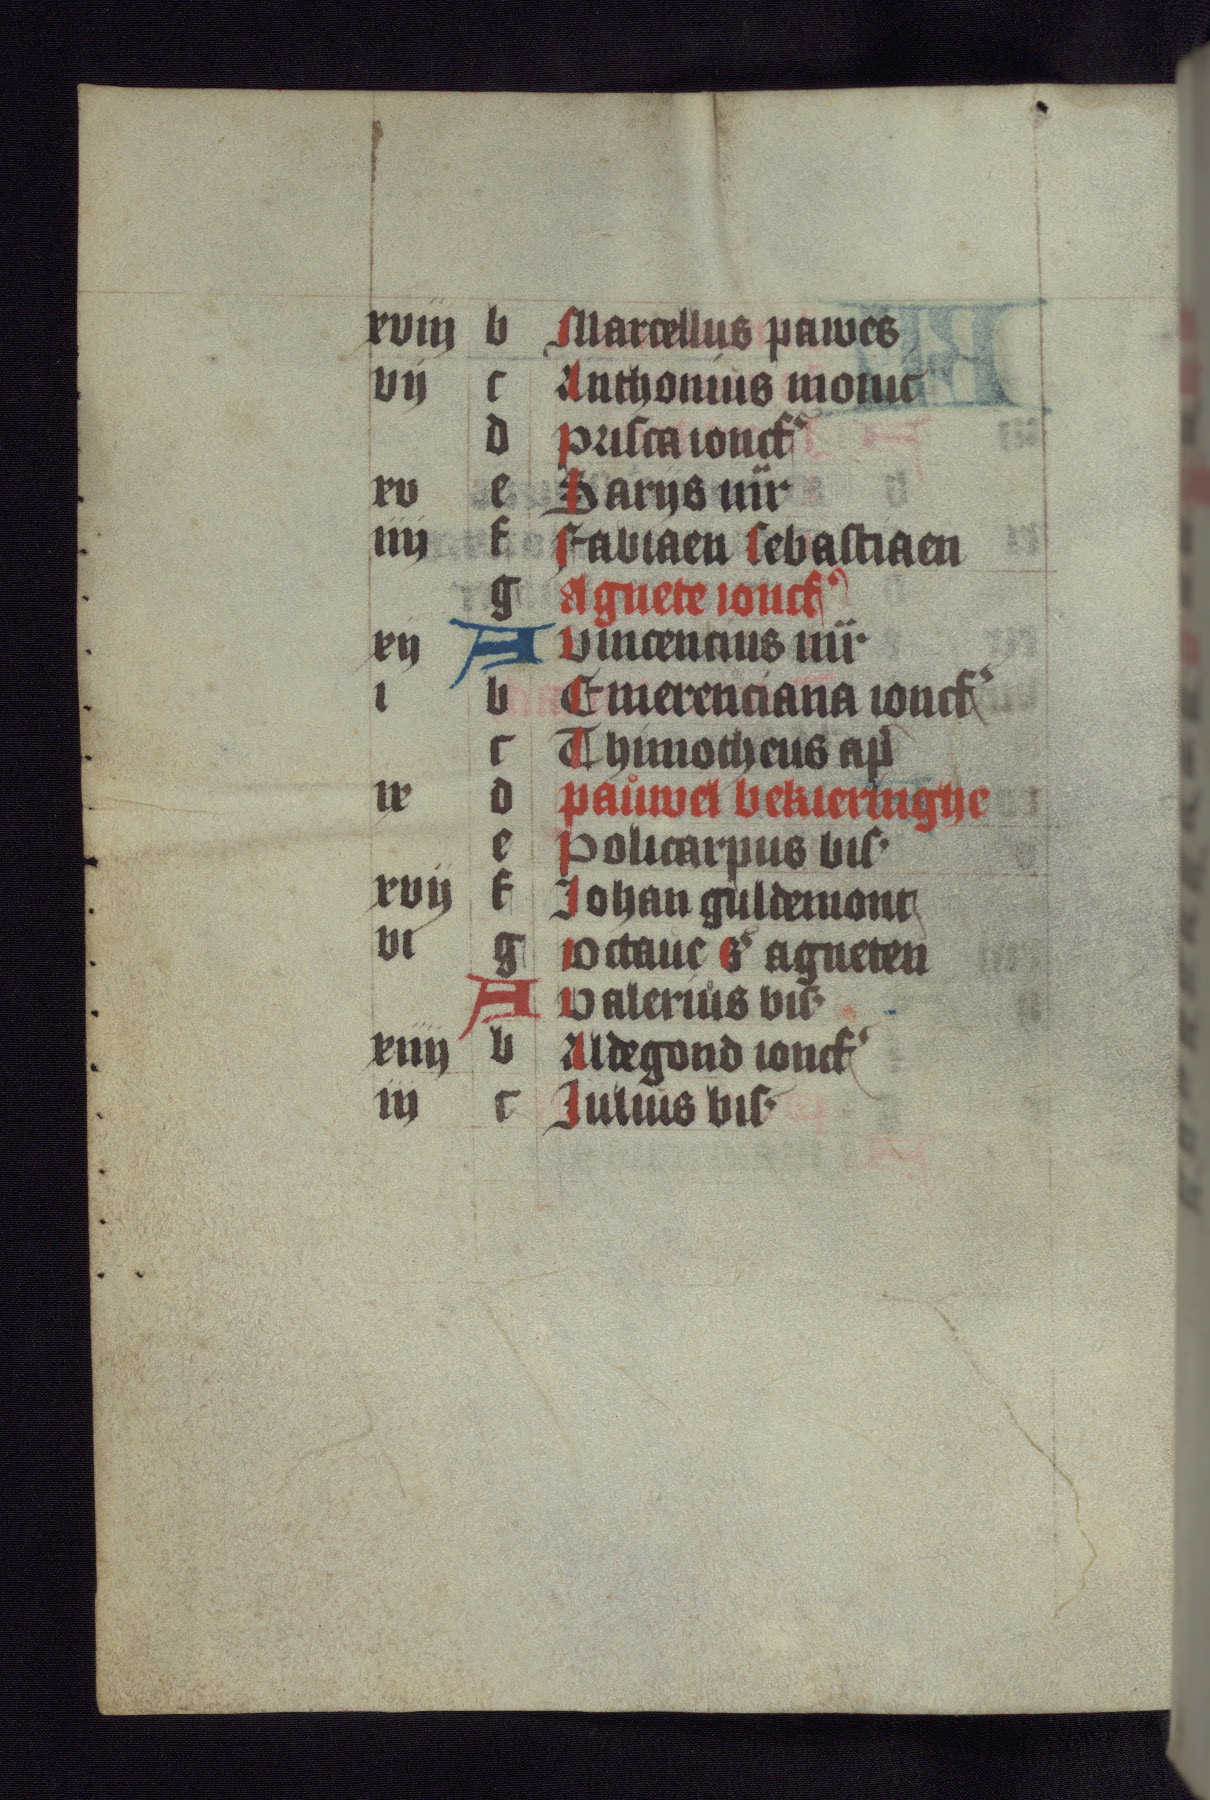 xviij b Marcellus pawes
vij c Anthonius monic
d Prisca ionckf
xv e Marijs mr
iiij f Fabiaen sebastiaen
g Agnete ionckf
xij A Vincencius mr
i b Emerenciana ionckf
c Thimotheus ap
ix d pauwel bekieringhe
e Policarpus bis
xvij f Johan guldemont
vi g octave s agneten
A Valerius bis
xiiij b Aldegond ionckf
iij c Julius bis